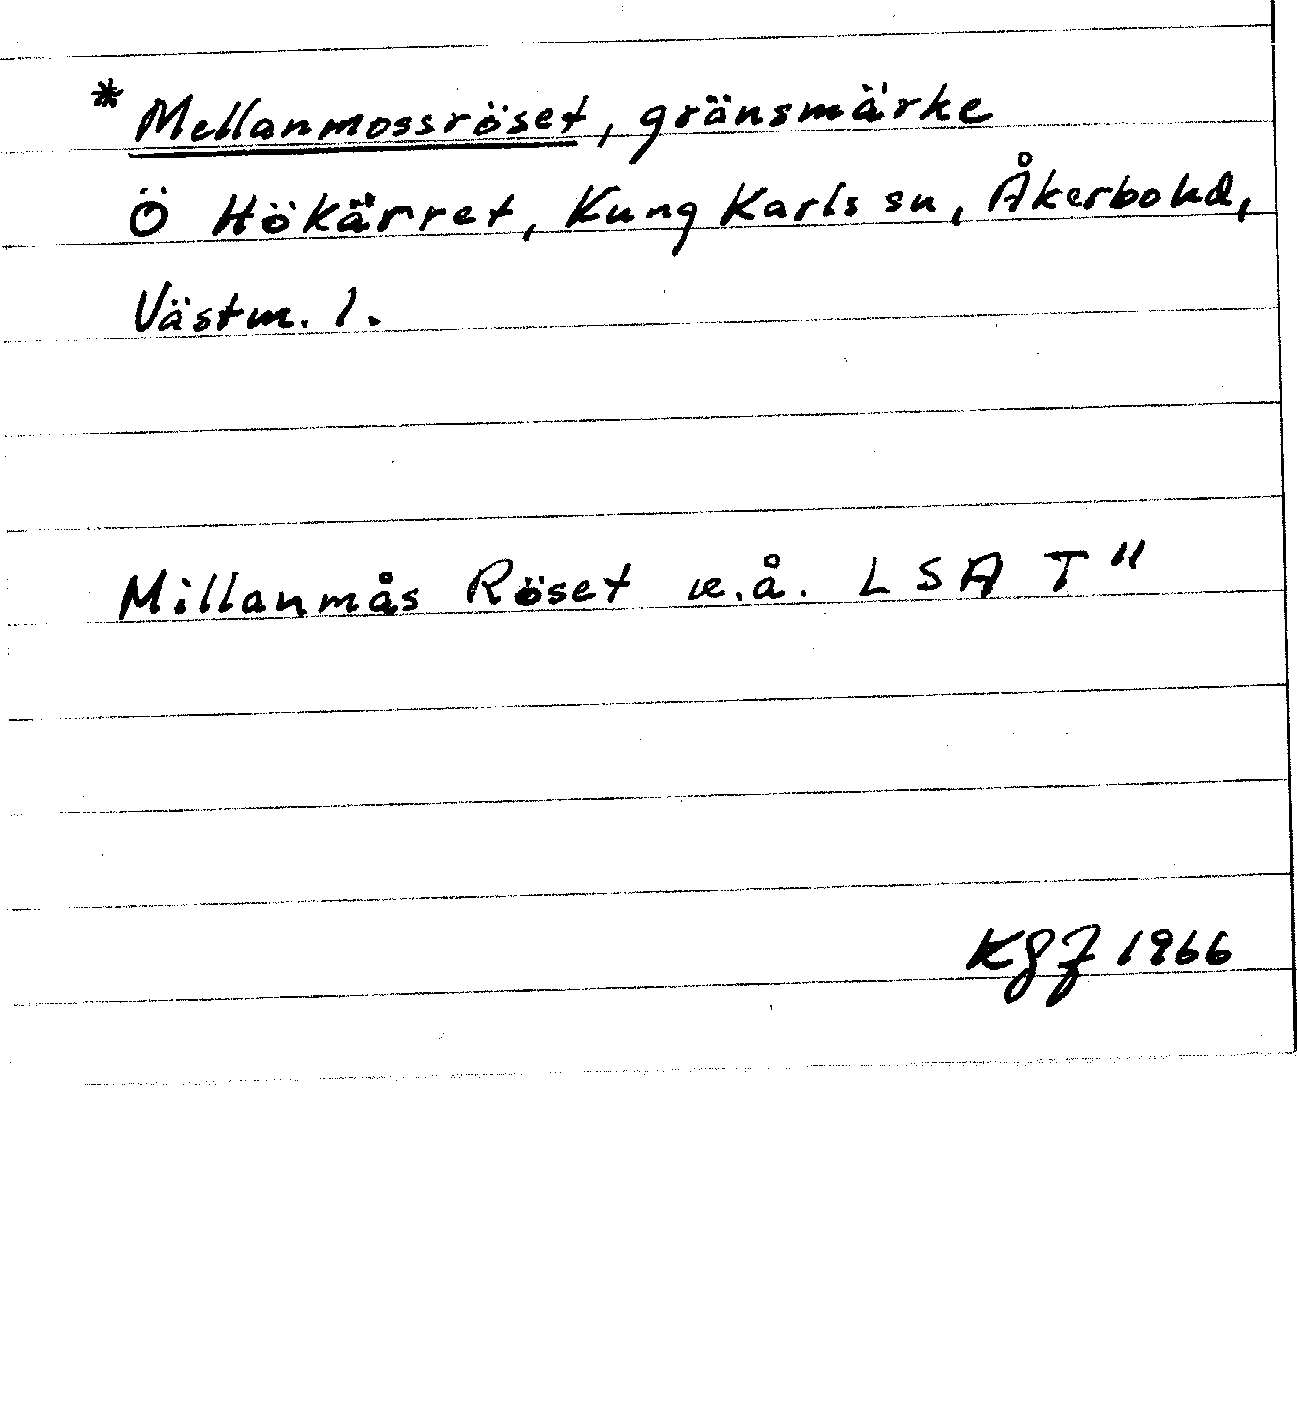 * Mellanmossröset, gränsmärke
Ö Hökärret, Kung Karls sn, Åkerbo hd,
Västm. l.
Millanmås Röset u.å. LSA T"
KGF 1966